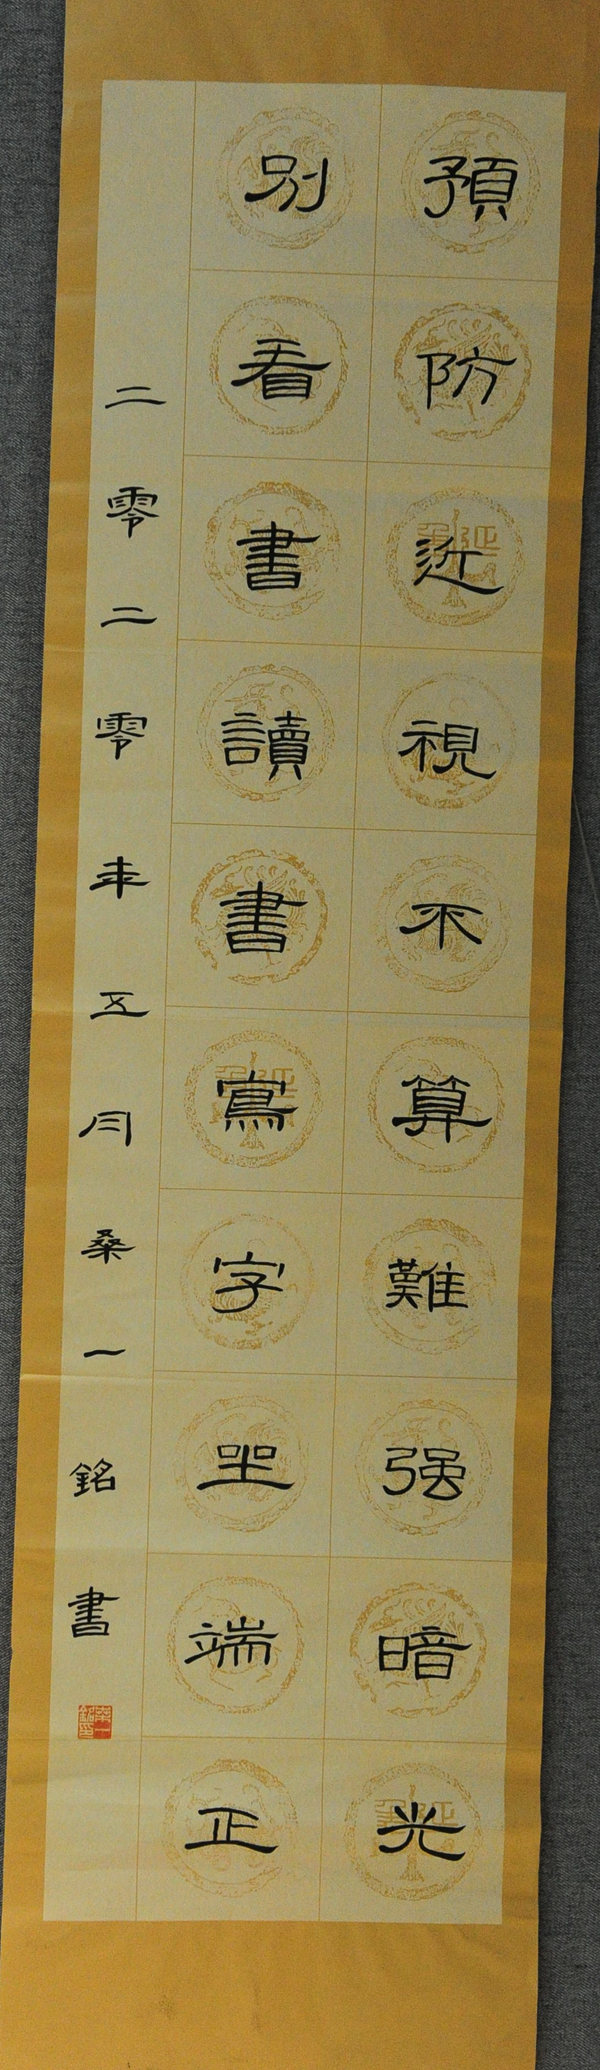 預防近視不算難強暗光
別看書讀書寫字坐端正
二零二零年五月桑一銘書
桑一銘印